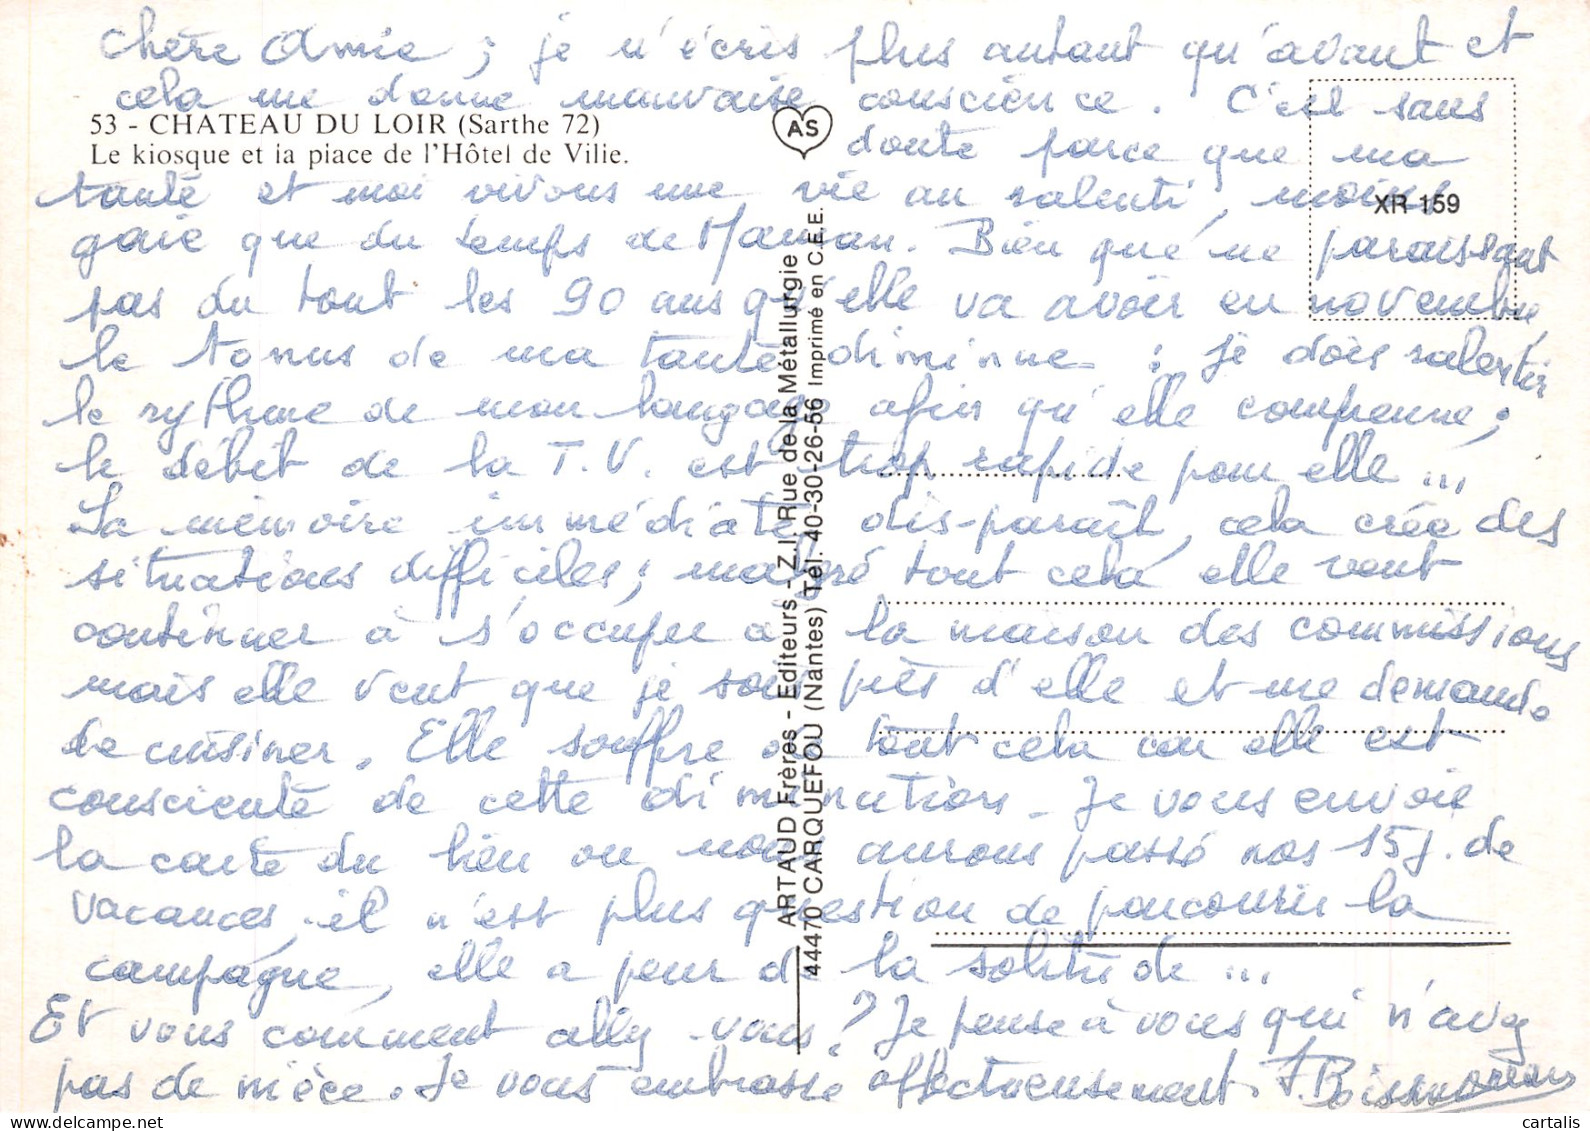 Chère Amie ; je n'écris plus autant qu'avant et
cela me donne mauvaise conscience. C'est sans
53 - CHATEAU DU LOIR (Sarthe 72)
Le kiosque et la place de l'Hôtel de Ville.
AS
doute parce que ma
XR 159
tante et moi vivons une vie au ralenti, moins
gaie que du temps de Maman. Bien que ne paraissant
pas du tout les 90 ans qu'elle va avoir en novembre,
le tonus de ma tante diminue : je dois ralentir
le rythme de mon langage afin qu'elle comprenne ;
le débit de la T.V. est trop rapide pour elle ...
La mémoire immédiate disparaît, cela crée des
situations difficiles ; malgré tout cela elle veut
continuer à s'occuper de la maison des commissions
mais elle veut que je sois près d'elle et me demande
de cuisiner. Elle souffre de tout cela car elle est
consciente de cette diminution. Je vous envoie
la carte du lieu où nous aurons passé nos 15 j. de
vacances, il n'est plus question de parcourir la
campagne, elle a peur de la solitude ...
Et vous comment allez-vous ? Je pense à vous qui n'avez
pas de nièce. Je vous embrasse affectueusement.
ARTAUD Frères - Editeurs - Z.I. Rue de la Métallurgie
44470 CARQUEFOU (Nantes) Tél. 40-30-26-56 Imprimé en C.E.E.
delcampe.net
cartalis